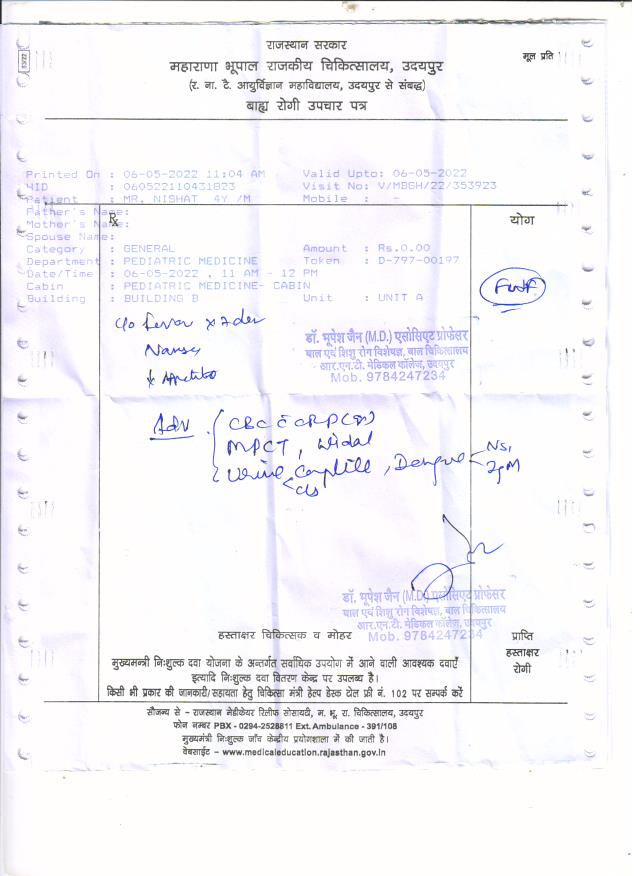 राजस्थान सरकार
महाराणा भूपाल राजकीय चिकित्सालय, उदयपुर
मूल प्रति
(र. ना. टै. आयुर्विज्ञान महाविद्यालय, उदयपुर से संबद्ध)
बाह्य रोगी उपचार पत्र
Printed On : 06-05-2022 11:04 AM Valid Upto: 06-05-2022
HID : 060522110431823 Visit No: V/MBGH/22/353923
Patient : MR. NISHAT 4Y /M Mobile : -
Father's Name:
Rx
योग
Mother's Name:
Spouse Name:
Category : GENERAL Amount : Rs.0.00
Department : PEDIATRIC MEDICINE Token : D-797-00197
Date/Time : 06-05-2022 , 11 AM - 12 PM
Cabin : PEDIATRIC MEDICINE- CABIN
Building : BUILDING B Unit : UNIT A
c/o Fever x 7 days
डॉ. भूपेश जैन (M.D.) एसोसिएट प्रोफेसर
बाल एवं शिशु रोग विशेषज्ञ, बाल चिकित्सालय
आर.एन.टी. मेडिकल कॉलेज, उदयपुर
Mob. 9784247234
Adv
CBC c CRP
MPCT, Widal
Urine Complete, Dengue NS1
c/s IgM
डॉ. भूपेश जैन (M.D.) एसोसिएट प्रोफेसर
बाल एवं शिशु रोग विशेषज्ञ, बाल चिकित्सालय
आर.एन.टी. मेडिकल कॉलेज, उदयपुर
Mob. 9784247234
हस्ताक्षर चिकित्सक व मोहर
प्राप्ति
हस्ताक्षर
रोगी
मुख्यमन्त्री निःशुल्क दवा योजना के अन्तर्गत सर्वाधिक उपयोग में आने वाली आवश्यक दवाएँ
इत्यादि निःशुल्क दवा वितरण केन्द्र पर उपलब्ध है।
किसी भी प्रकार की जानकारी/सहायता हेतु चिकित्सा मंत्री हेल्प डेस्क टोल फ्री नं. 102 पर सम्पर्क करें
सौजन्य से - राजस्थान मेडीकेयर रिलीफ सोसायटी, म. भू. रा. चिकित्सालय, उदयपुर
फोन नम्बर PBX - 0294-2528811 Ext. Ambulance - 391/108
मुख्यमंत्री निःशुल्क जाँच केन्द्रीय प्रयोगशाला में की जाती है।
वेबसाईट - www.medicaleducation.rajasthan.gov.in